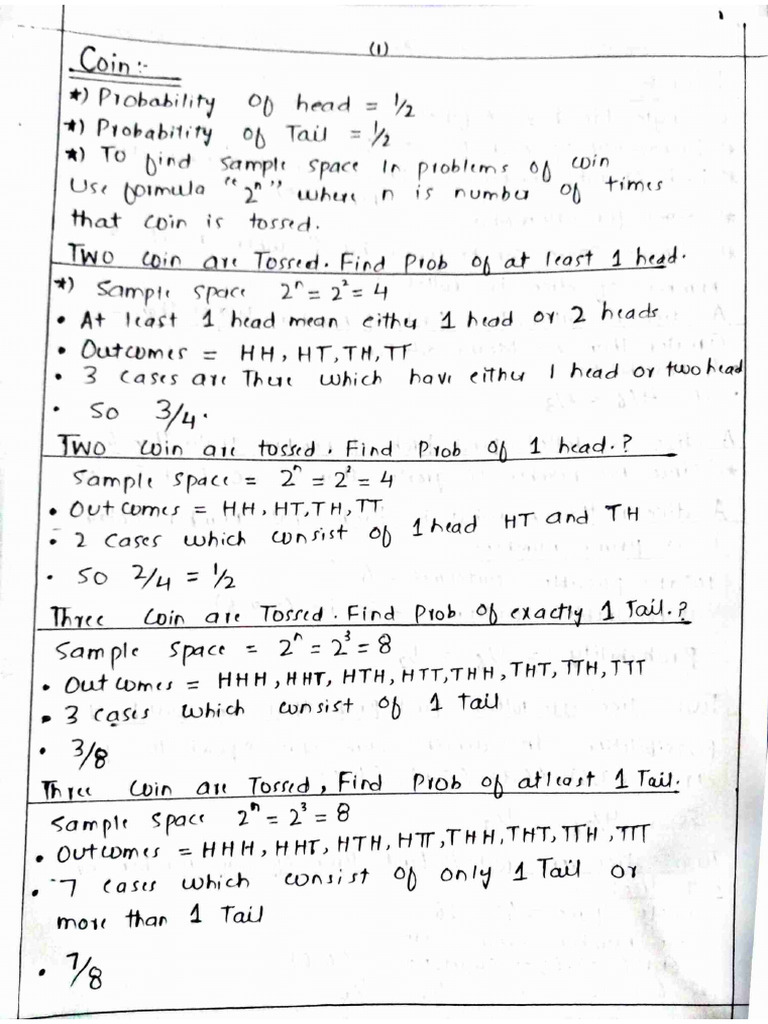 (1)
Coin:-
*) Probability of head = 1/2
*) Probability of Tail = 1/2
*) To find sample space in problems of coin
Use formula "2ⁿ" where n is number of times
that coin is tossed.
Two coin are Tossed. Find Prob of at least 1 head.
*) Sample space 2ⁿ = 2² = 4
• At least 1 head mean either 1 head or 2 heads
• Outcomes = HH, HT, TH, TT
• 3 cases are There which have either 1 head or two head
• So 3/4.
Two coin are tossed. Find Prob of 1 head.?
Sample space = 2ⁿ = 2² = 4
• Outcomes = HH, HT, TH, TT
• 2 cases which consist of 1 head HT and TH
• So 2/4 = 1/2
Three coin are Tossed. Find Prob of exactly 1 Tail.?
Sample space = 2ⁿ = 2³ = 8
• Outcomes = HHH, HHT, HTH, HTT, THH, THT, TTH, TTT
• 3 cases which consist of 1 tail
• 3/8
Three coin are Tossed, Find Prob of atleast 1 Tail.
Sample space 2ⁿ = 2³ = 8
• Outcomes = HHH, HHT, HTH, HTT, THH, THT, TTH, TTT
• 7 cases which consist of only 1 Tail or
more than 1 Tail
• 7/8